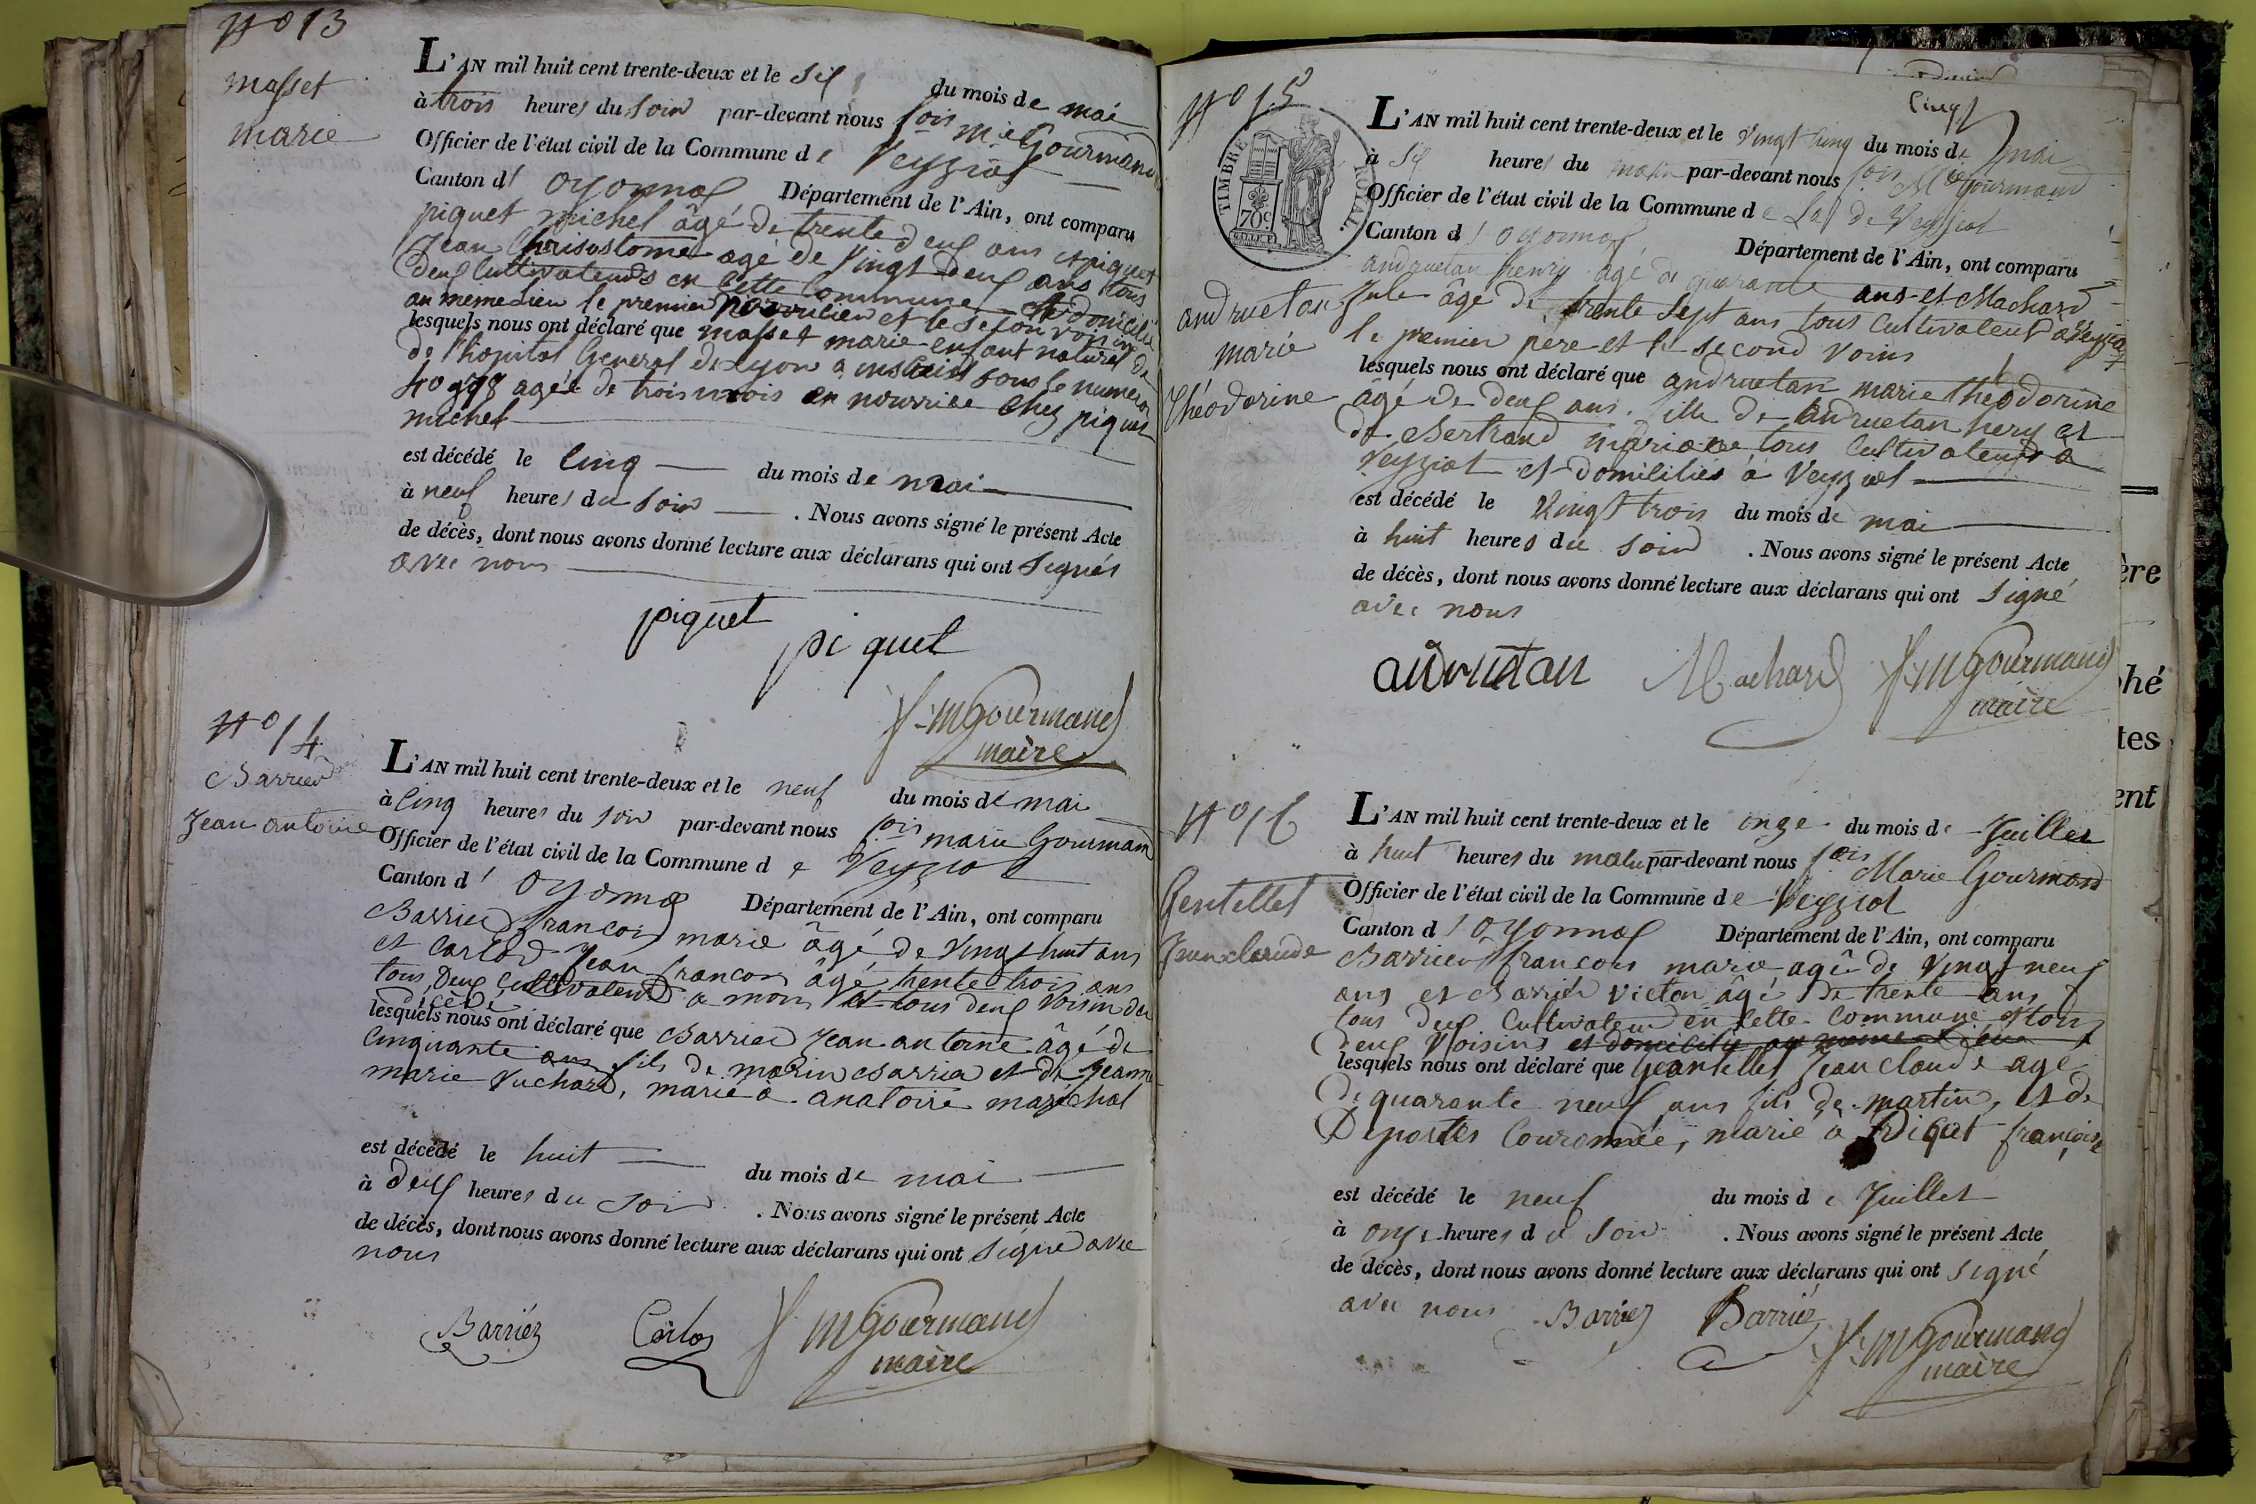 N° 13
masset
marie
L'AN mil huit cent trente-deux et le six du mois de mai
à trois heures du soir par-devant nous fois mie Gourmand
Officier de l'état civil de la Commune de Veyziat
Canton d'oyonnax Département de l'Ain, ont comparu
piquet michel âgé de trente deux ans et piquet
Jean Chrisostome agé de vingt deux ans tous
deux Cultivateurs en cette Commune et domicilié
au meme Lieu le premier nourricier et le second voisin
lesquels nous ont déclaré que masset marie enfant naturel
de l'hopital General de Lyon inscrit sous le numero
agée de trois mois en nourrice chez piquet
michel
est décédé le cinq du mois de mai
à neuf heures du soir . Nous avons signé le présent Acte
de décès, dont nous avons donné lecture aux déclarans qui ont signés
avec nous
piquet
piquet
f. m Gourmand
maire
N° 14
Barrier
Jean antoine
L'AN mil huit cent trente-deux et le neuf du mois de mai
à cinq heures du soir par-devant nous fois marie Gourmand
Officier de l'état civil de la Commune de Veyziat
Canton d'oyonnax Département de l'Ain, ont comparu
Barrier francois marie âgé de vingt huit ans
et Carlod Jean francois âgé trente trois ans
tous Deux Cultivateurs a mons et tous deux voisin du
décédé
lesquels nous ont déclaré que Barrier Jean antoine âgé de
Cinquante ans fils de marin Barrier et de Jeanne
marie Vuchard, marié à anatoire maréchal
est décédé le huit du mois de mai
à deux heures du soir . Nous avons signé le présent Acte
de décès, dont nous avons donné lecture aux déclarans qui ont signé avec
nous
Barriéz Carlos f. m Gourmand
maire
Cinq
N° 15
TIMBRE ROYAL.
70 c
andruetan
marie
théodorine
L'AN mil huit cent trente-deux et le vingt cinq du mois de mai
à six heures du matin par-devant nous fois Mie Gourmand
Officier de l'état civil de la Commune de de Veyziat
Canton d'oyonnax Département de l'Ain, ont comparu
andruetan henry agé de quarante ans et Machard
Jule âgé de trente sept ans tous Cultivateur à Veyziat
le premier père et le second voisin
lesquels nous ont déclaré que andruetan marie théodorine
âgé de deux ans. fille de andruetan hery et
de Bertrand mariane tous Cultivateurs a
Veyziat et domiciliés à Veyziat
est décédé le vingt trois du mois de mai
à huit heures du soir . Nous avons signé le présent Acte
de décès, dont nous avons donné lecture aux déclarans qui ont signé
avec nous
andruetan Machard f. m Gourmand
maire
N° 16
Gentellet
Jean claude
L'AN mil huit cent trente-deux et le onze du mois de Juillet
à huit heures du matin par-devant nous fois Marie Gourmand
Officier de l'état civil de la Commune de Veyziat
Canton d'oyonnax Département de l'Ain, ont comparu
Barrier francois marie agé de vingt neuf
ans et Barrier victor âgé de trente ans
tous deux Cultivateur en cette commune et tous
deux voisins et domicilié au meme Lieu
lesquels nous ont déclaré que Geantellet Jean claude age
de quarante neuf ans fils de martin, et de
Deportes Couronnée, marié a françoise
est décédé le neuf du mois de Juillet
à onze heures du soir . Nous avons signé le présent Acte
de décès, dont nous avons donné lecture aux déclarans qui ont signé
avec nous Barriez Barriéz f. m Gourmand
maire
ère
hé
tes
ent